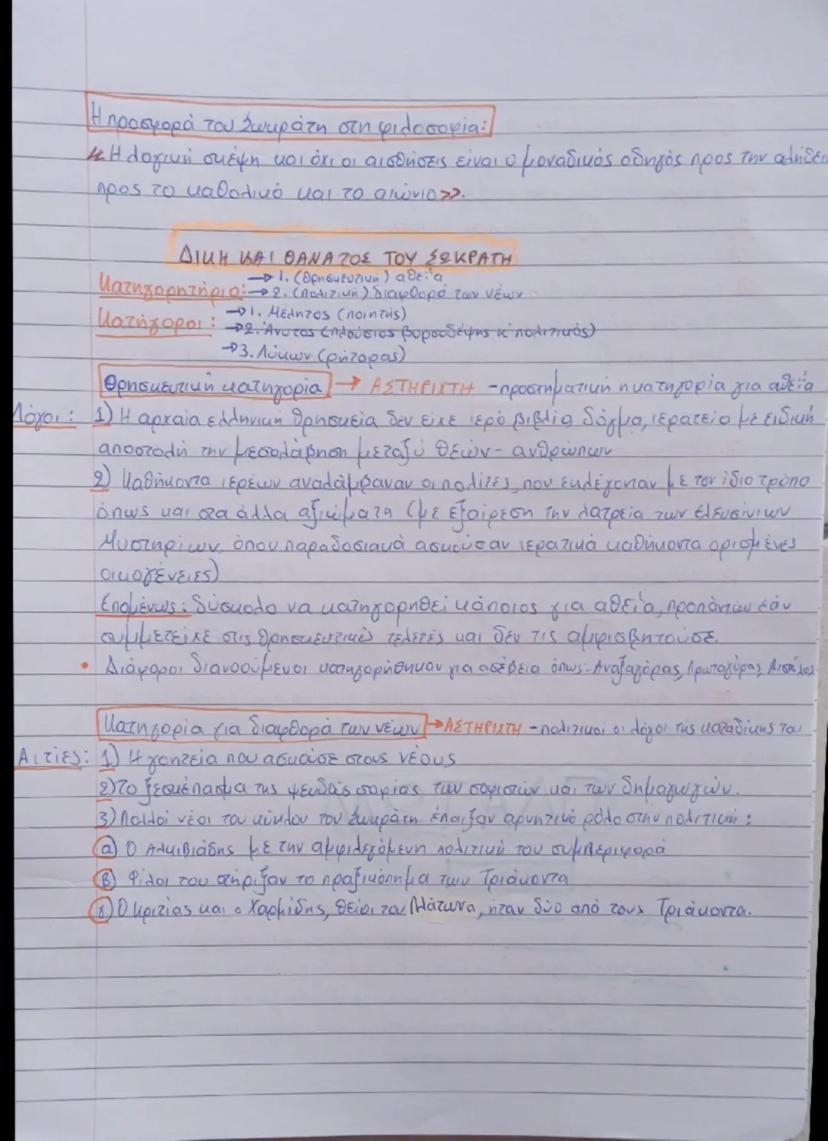 Η προσφορά του Σωκράτη στη φιλοσοφία:
«Η λογική σκέψη και όχι οι αισθήσεις είναι ο μοναδικός οδηγός προς την αλήθει
προς το καθολικό και το αιώνιο».
ΔΙΚΗ ΚΑΙ ΘΑΝΑΤΟΣ ΤΟΥ ΣΩΚΡΑΤΗ
Κατηγορητήριο: → 1. (Θρησκευτική) αθεΐα
→ 2. (Πολιτική) διαφθορά των νέων
Κατήγοροι: → 1. Μέλητος (ποιητής)
→ 2. Άνυτος (πλούσιος βυρσοδέψης κ' πολιτικός)
→ 3. Λύκων (ρήτορας)
Θρησκευτική κατηγορία → ΑΣΤΗΡΙΧΤΗ - προσχηματική η κατηγορία για αθεΐα
Λόγοι: 1) Η αρχαία ελληνική θρησκεία δεν είχε ιερό βιβλίο, δόγμα, ιερατείο με ειδική
αποστολή την μεσολάβηση μεταξύ θεών - ανθρώπων
2) Καθήκοντα ιερέων αναλάμβαναν οι πολίτες, που εκλέγονταν με τον ίδιο τρόπο
όπως και στα άλλα αξιώματα (με εξαίρεση την λατρεία των Ελευσίνιων
Μυστηρίων, όπου παραδοσιακά ασκούσαν ιερατικά καθήκοντα ορισμένες
οικογένειες)
Επομένως: δύσκολο να κατηγορηθεί κάποιος για αθεΐα, προπάντων εάν
συμμετείχε στις θρησκευτικές τελετές και δεν τις αμφισβητούσε.
• Διάφοροι διανοούμενοι κατηγορήθηκαν για ασέβεια όπως: Αναξαγόρας, Πρωταγόρας,
Κατηγορία για διαφθορά των νέων → ΑΣΤΗΡΙΧΤΗ - πολιτικοί οι λόγοι της καταδίκης του
Αιτίες: 1) Η γοητεία που ασκούσε στους νέους
2) Το ξεσκέπασμα της ψευδούς σοφίας των σοφιστών και των δημαγωγών.
3) Πολλοί νέοι του κύκλου του Σωκράτη έπαιξαν αρνητικό ρόλο στην πολιτική:
α) Ο Αλκιβιάδης με την αμφιλεγόμενη πολιτική του συμπεριφορά
β) Φίλοι του στήριξαν το πραξικόπημα των Τριάκοντα
γ) Ο Κριτίας και ο Χαρμίδης, θείοι του Πλάτωνα, ήταν δύο από τους Τριάκοντα.